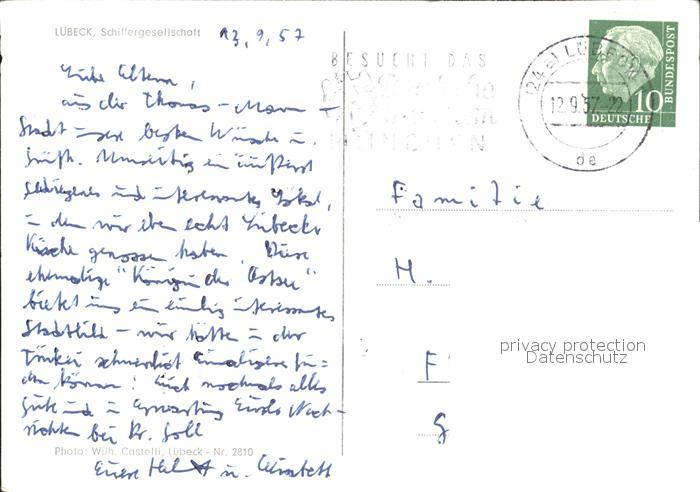 LÜBECK, Schiffergesellschaft
13.9.57
Liebe Eltern,
aus der Thomas-Mann-
Stadt unsere besten Wünsche u.
Umseitig ein äußerst
und interessantes Lokal,
in dem wir eben echt Lübecker
Küche genossen haben. Diese
ehemalige "Königin der Ostsee"
bietet uns ein einzig interessantes
Stadtbild - wir hätten in der
Türkei schwerlich Einmaligeres fin-
den können! Euch nochmals alles
Gute und in Erwartung Eurer Nach-
richten bei Dr. Goll
Photo: Wilh. Castelli, Lübeck - Nr. 2810
Eure u. Elisabeth
BESUCHT DAS
MÜNCHEN
(24a) LÜBECK
12.9.57-22
de
10
DEUTSCHE
BUNDESPOST
Familie
H.
F
G
privacy protection
Datenschutz